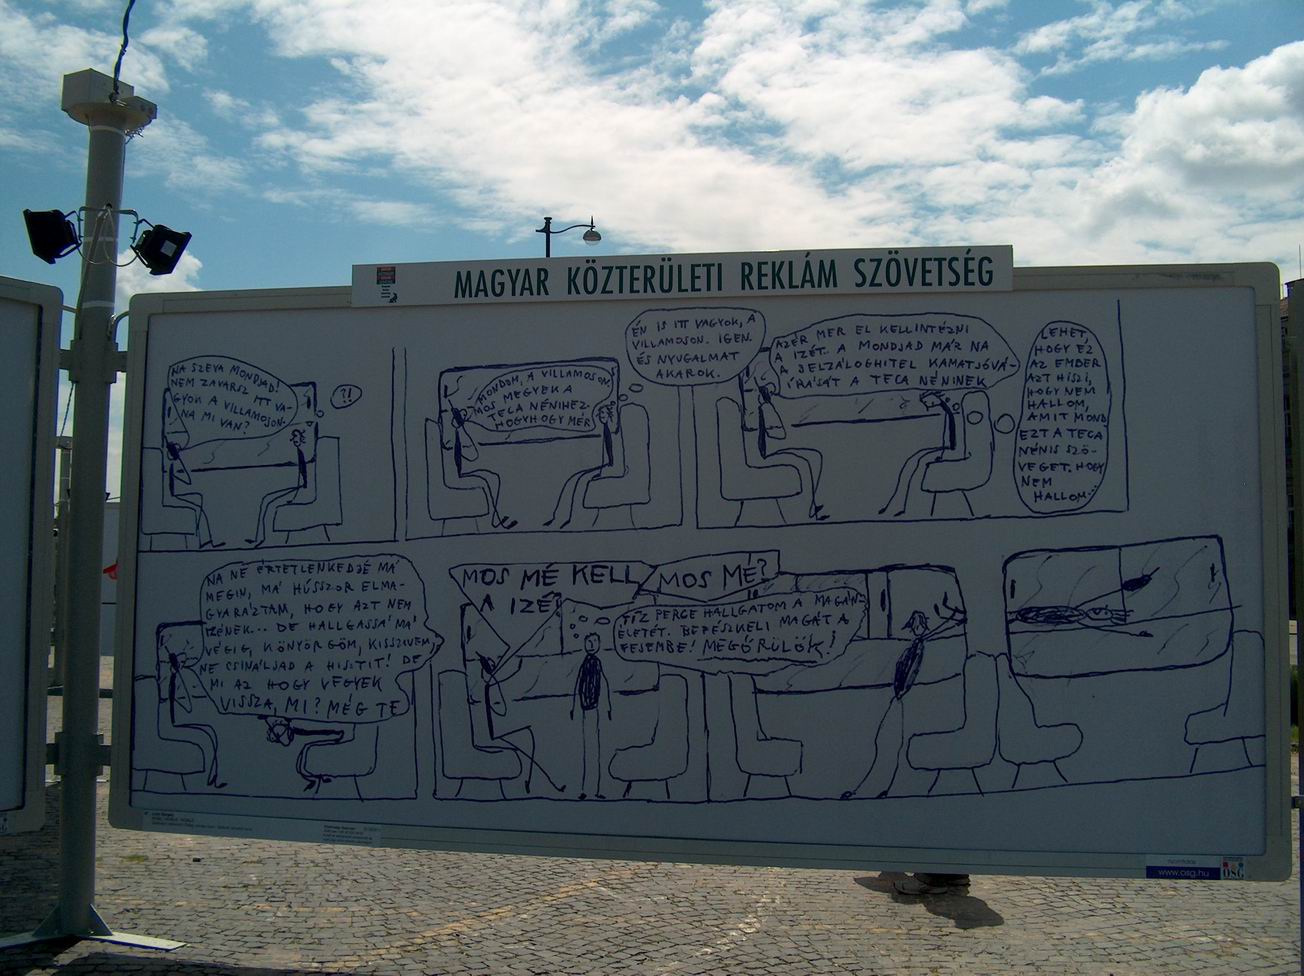 MAGYAR KÖZTERÜLETI REKLÁM SZÖVETSÉG
NA SZEVA MONDJAD!
NEM ZAVARSZ ITT VA-
GYOK A VILLAMOSON.
NA MI VAN?
?!
MONDOM, A VILLAMOSON.
MOS MEGYEK A
TECA NÉNIHEZ
HOGYHOGY MÉR
ÉN IS ITT VAGYOK, A
VILLAMOSON. IGEN.
ÉS NYUGALMAT
AKAROK.
AZÉR MER EL KELLINTÉZNI
A IZÉT. A MONDJAD MÁR NA
A JELZÁLOGHITEL KAMATJÓVÁ-
ÍRÁSÁT A TECA NÉNINEK
LEHET,
HOGY EZ
AZ EMBER
AZT HISZI,
HOGY NEM
HALLOM,
AMIT MOND
EZT A TECA
NÉNIS SZÖ-
VEGET. HOGY
NEM
HALLOM...
NA NE ÉRTETLENKEDJÉ MÁ'
MEGIN, MÁ' HÚSSZOR ELMA-
GYARÁZTAM, HOGY AZT NEM
IZÉNEK... DE HALLGASSÁ' MÁ'
VÉGIG, KÖNYÖRGÖM, KISSZÍVEM,
NE CSINÁLJAD A HISZTIT! DE
MI AZ HOGY VEGYEK
VISSZA, MI? MÉG TE
MOS MÉ KELL
A IZÉ
MOS MÉ?
TÍZ PERCE HALLGATOM A MAGÁN-
ÉLETÉT. BEFÉSZKELI MAGÁT A
FESEMBE! MEGŐRÜLÖK!
www.osg.hu
ÖSG